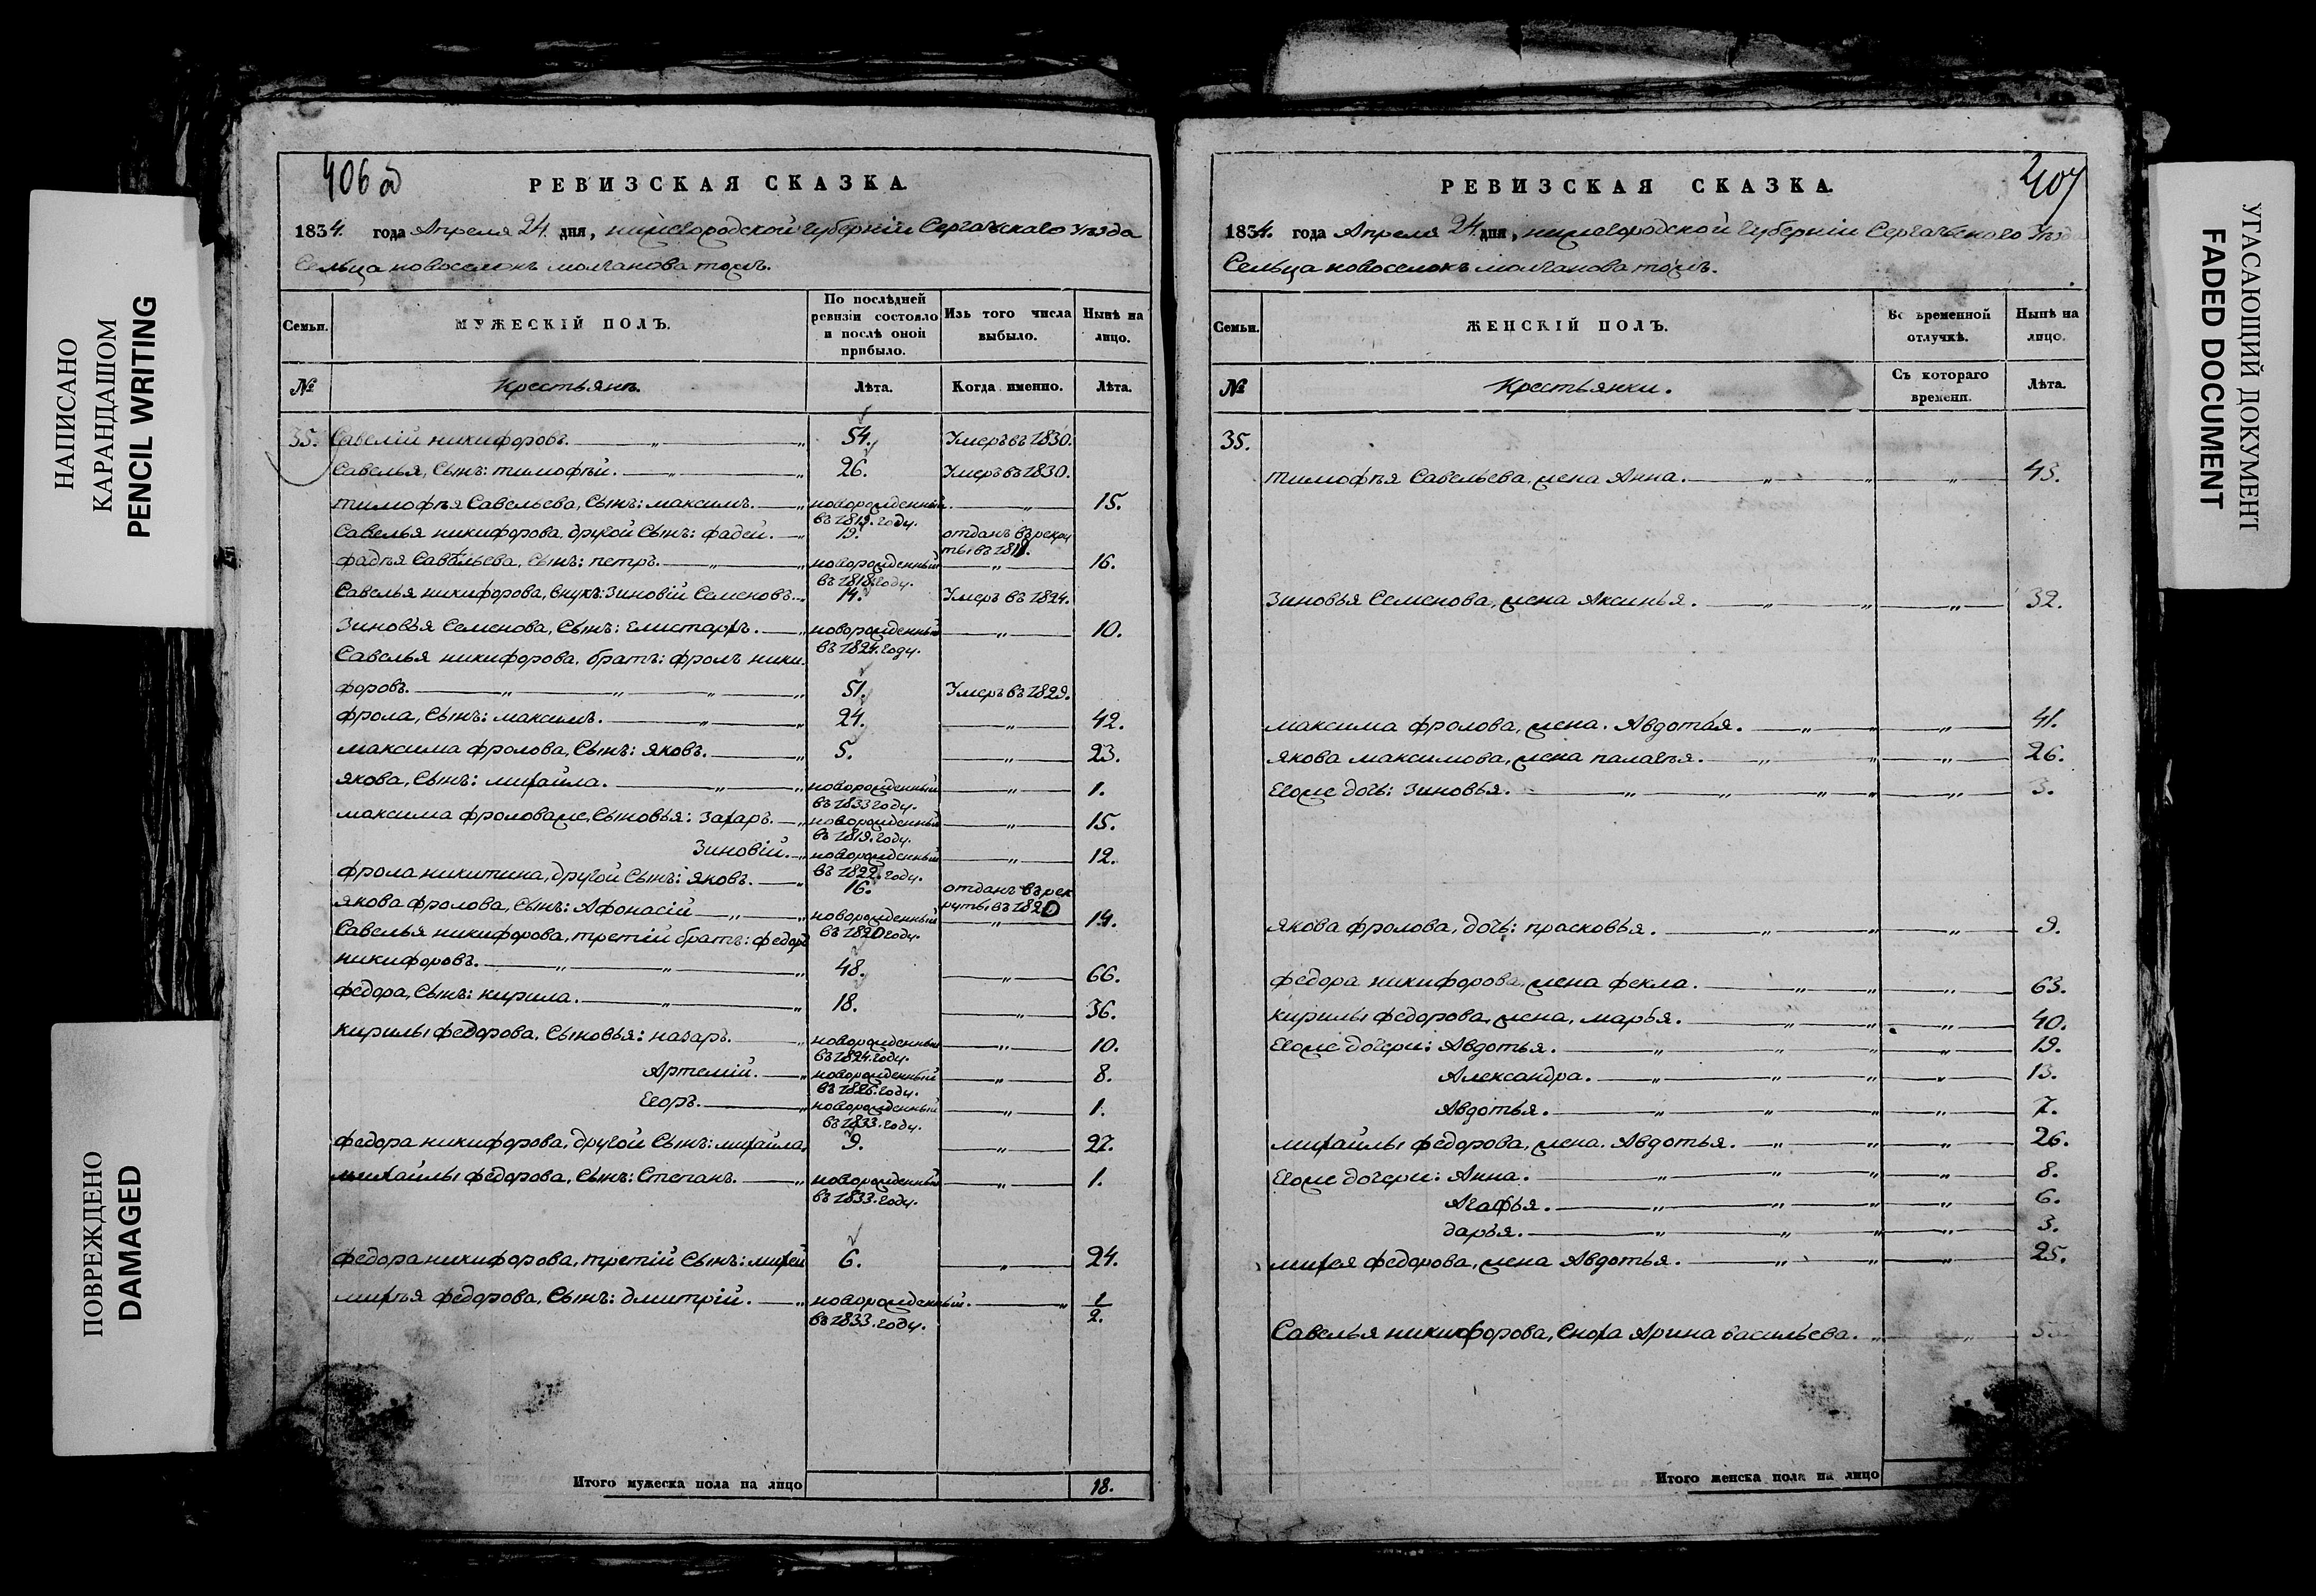 НАПИСАНО
КАРАНДАШОМ
PENCIL WRITING
ПОВРЕЖДЕНО
DAMAGED
406 об
РЕВИЗСКАЯ СКАЗКА.
1834. года Апреля 24. дня, нижегородской губернiи Сергачскаго уѣзда
Сельца новоселокъ молчанова тожъ.
Семьи. МУЖЕСКIЙ ПОЛЪ. По послѣдней ревизiи состояло и послѣ оной прибыло. Изъ того числа выбыло. Нынѣ на лицо.
№ Крестьянъ. Лѣта. Когда именно. Лѣта.
35. Савелiй никифоровъ. 54. Умеръ въ 1830.
Савелья, Сынъ: тимофѣй. 26. Умеръ въ 1830.
тимофѣя Савельева, Сынъ: максимъ. новорожденный въ 1819. году. 15.
Савелья никифорова, другой Сынъ: фадей. 19. отданъ въ рекру
ты въ 181
фадѣя Савельева, Сынъ: петръ. новорожденный въ 1818. году. 16.
Савелья никифорова, внукъ: Зиновiй Семеновъ. 14. Умеръ въ 1824.
Зиновья Семенова, Сынъ: Елистархъ. новорожденный въ 1824. году. 10.
Савелья никифорова, братъ: фролъ ники
форовъ. 51. Умеръ въ 1829.
фрола, Сынъ: максимъ. 24. 42.
максима фролова, Сынъ: яковъ. 5. 23.
якова, Сынъ: михайла. новорожденный въ 1833 году. 1.
максима фроловаже, Сыновья: Захаръ. новорожденный въ 1819. году. 15.
Зиновiй. новорожденный въ 1822. году. 12.
фрола никитина, другой Сынъ: яковъ. 16. отданъ въ рек
руты въ 1820
якова фролова, Сынъ: Афонасiй новорожденный въ 1820 году. 14.
Савелья никифорова, третiй братъ: федоръ
никифоровъ. 48. 66.
федора, Сынъ: кирила. 18. 36.
кирилы федорова, Сыновья: назаръ. новорожденный въ 1824. году. 10.
Артемiй. новорожденный въ 1826. году. 8.
Егоръ. новорожденный въ 1833. году. 1.
федора никифорова, другой Сынъ: михайла. 9. 27.
михайлы федорова, Сынъ: Степанъ. новорожденный въ 1833. году. 1.
федора никифорова, третiй Сынъ: михей 6. 24.
михѣя федорова, Сынъ: дмитрiй. новорожденный. въ 1833. году. 1/2.
Итого мужеска пола на лицо 18.
407
РЕВИЗСКАЯ СКАЗКА.
1834. года Апреля 24. дня, нижегородской губернiи Сергачьского уѣзда
Сельца новоселокъ молчанова тожъ.
Семьи. ЖЕНСКIЙ ПОЛЪ. Во временной отлучкѣ. Нынѣ на лицо.
№ Крестьянки. Съ котораго времени. Лѣта.
35.
тимофѣя Савельева, жена Анна. 43.
Зиновья Семенова, жена Аксинья. 32.
максима фролова, жена. Авдотья. 41.
якова максимова, жена палагѣя. 26.
Егоже дочь: Зиновья. 3.
якова фролова, дочь: прасковья. 9.
федора никифорова, жена фекла. 63.
кирилы федорова, жена, марья. 40.
Егоже дочери: Авдотья. 19.
Александра. 13.
Авдотья. 7.
михайлы федорова, жена. Авдотья. 26.
Егоже дочери: Анна. 8.
Агафья. 6.
дарья. 3.
михея федорова, жена Авдотья. 25.
Савелья никифорова, Сноха Арина васильева.
Итого женска пола на лицо
УГАСАЮЩИЙ ДОКУМЕНТ
FADED DOCUMENT